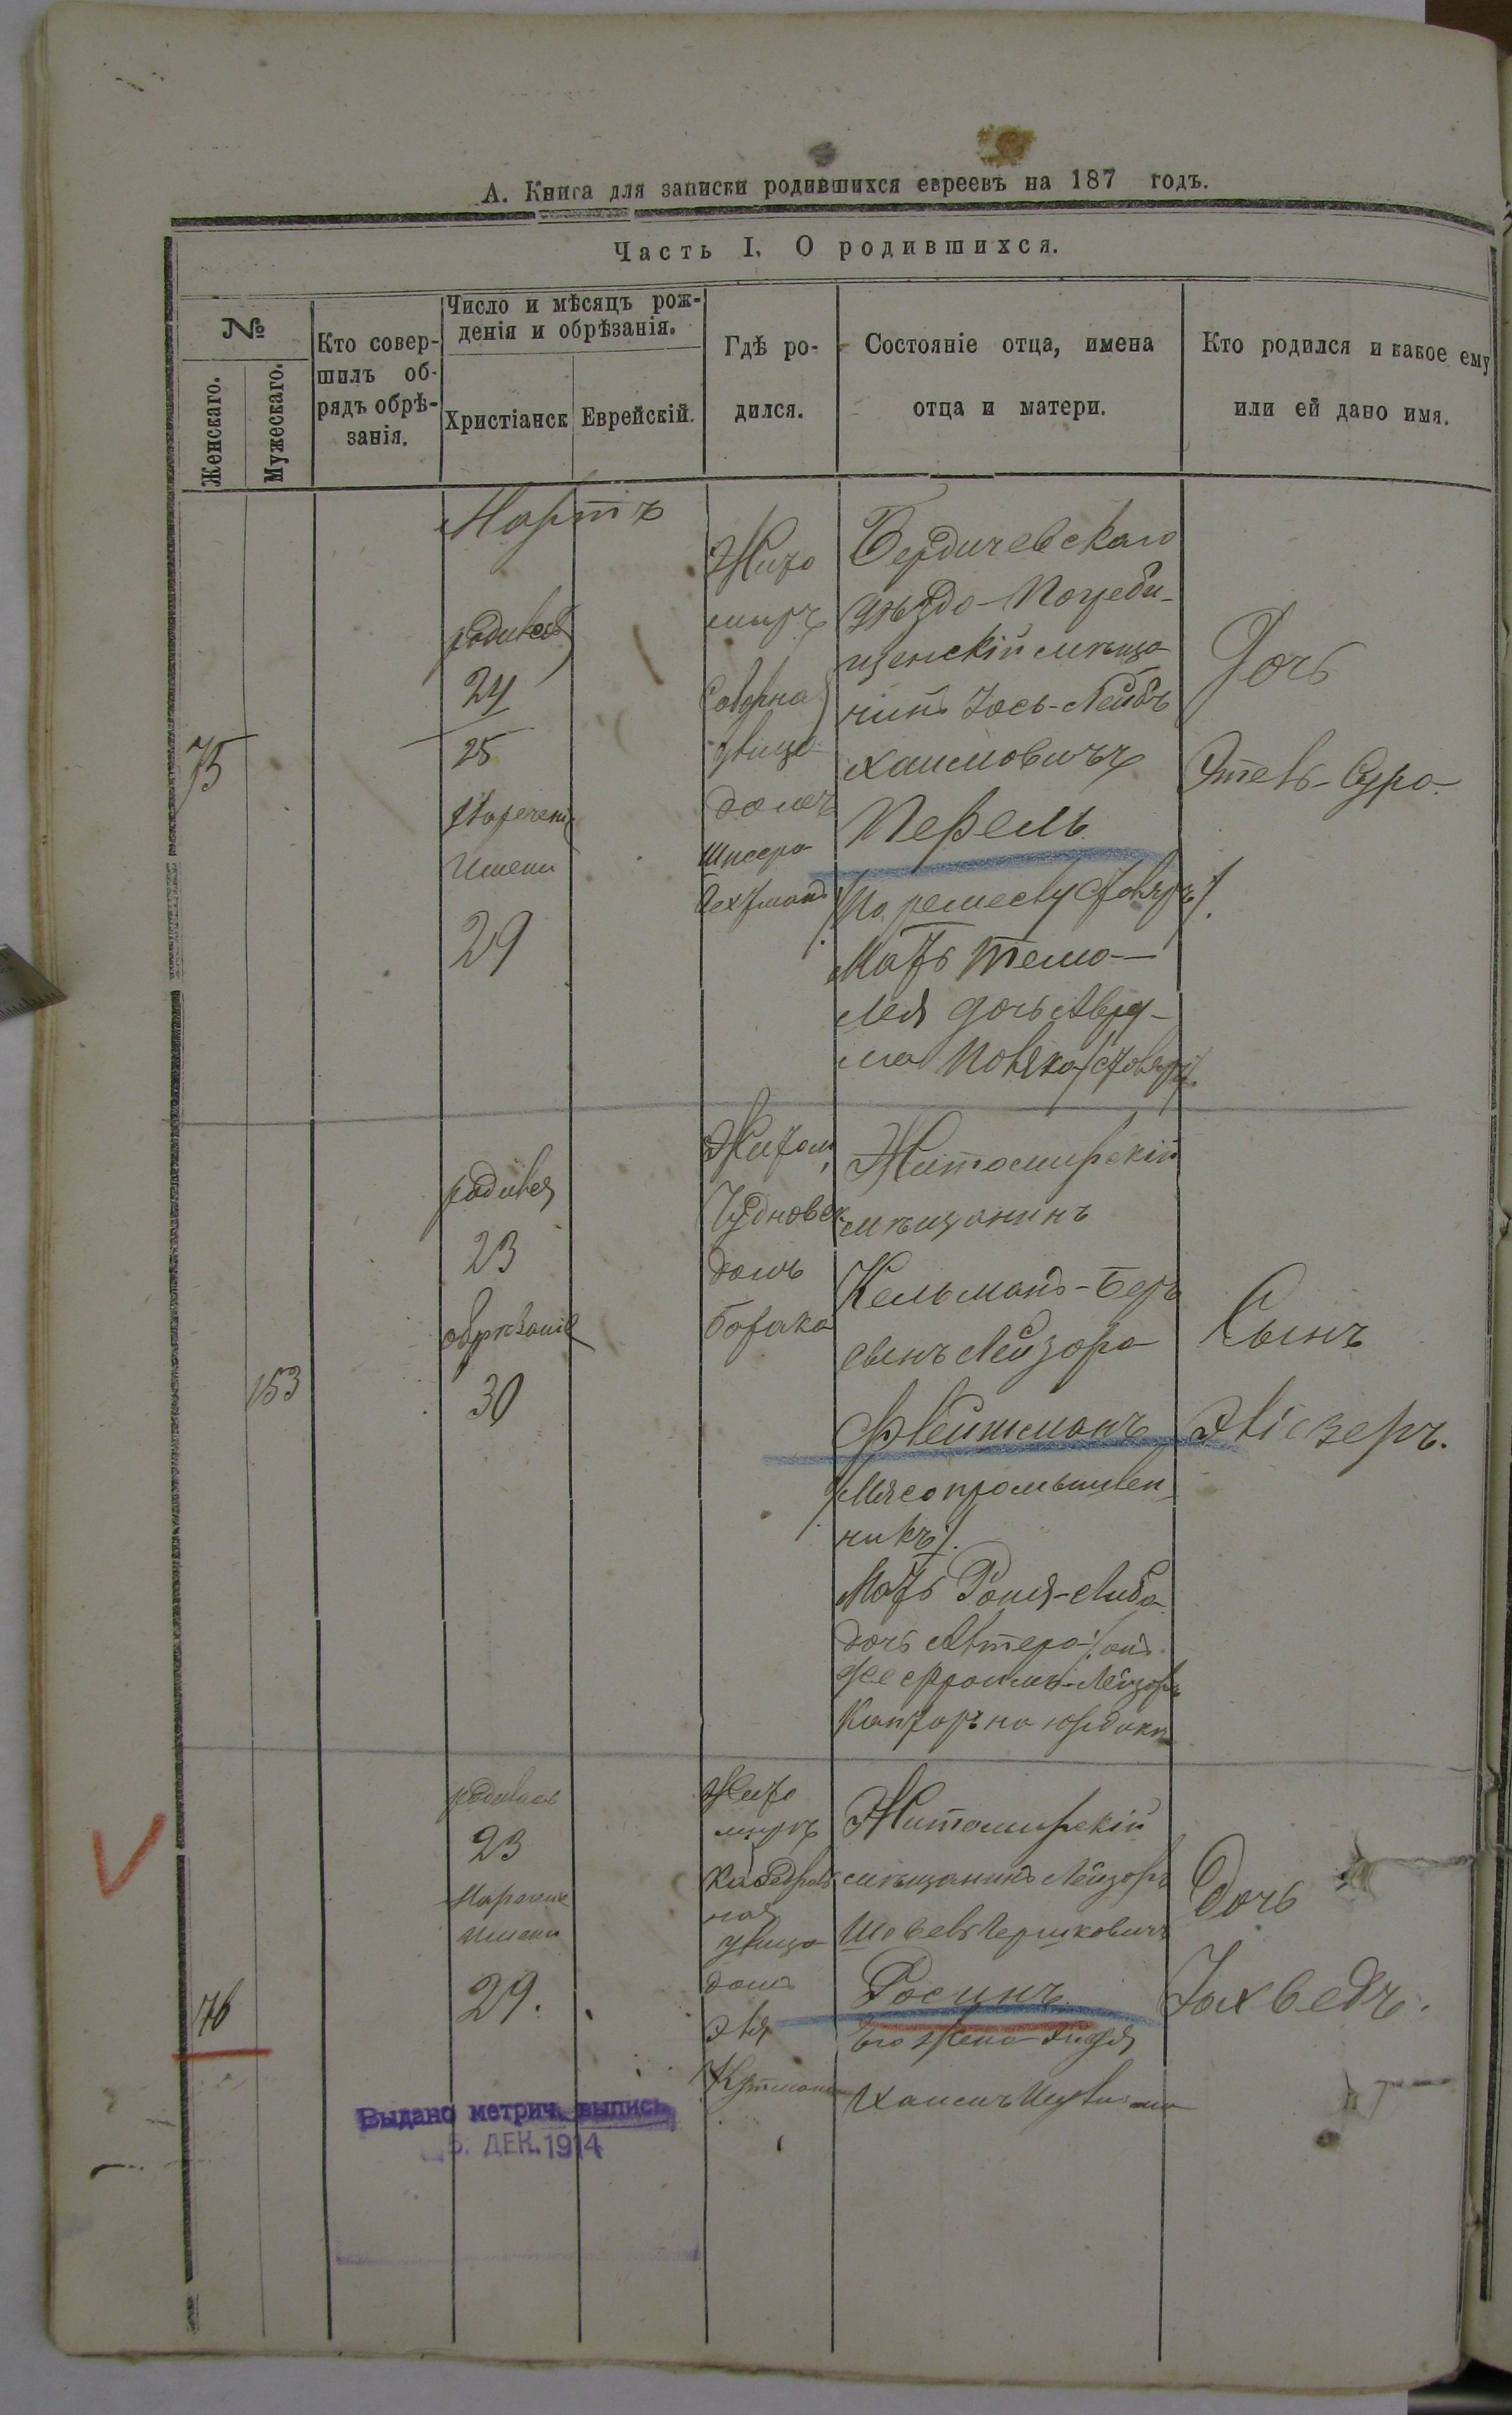 А. Книга для записки родившихся евреевъ на 187 годъ.
Часть I. О родившихся.
№
Женскаго.
Мужескаго.
Кто совер-
шилъ об-
рядъ обрѣ-
занія.
Число и мѣсяцъ рож-
денія и обрѣзанія.
Христіанск
Еврейскій.
Гдѣ ро-
дился.
Состояніе отца, имена
отца и матери.
Кто родился и какое ему
или ей дано имя.
Мартъ
75
родилась
24
25
Нареченіе
Имени
29
Жито
миръ
Соборна
улица
домъ
Бердичевскаго
уѣзда-Погреби-
щенскій мѣща
нинъ Іось-Лейбъ
Хаимовичъ
Перель
/по ремеслу Столяръ/.
Мать Тема-
Лея дочь Авра-
ма
Дочь
Этель-Сура
153
родился
23
обрѣзаніе
30
Житом
Чудновск
домъ
Житомирскій
мѣщанинъ
Кельманъ-Беръ
сынъ Лейзора
Флейшманъ
/Мясопромышлен
никъ/.
Мать Рапя-Либа
дочь Алтера /онъ
же Фроимъ-Лейзоръ
Канторъ на
Сынъ
Эліезеръ.
76
родилась
23
Нареченіе
Имени
29.
Жито
миръ
Кафедраль
ная
улица
домъ
Эля
Житомирскій
мѣщанинъ Лейзоръ
Гершковичъ
Росинъ
Его жена
Хаимъ
Дочь
Іохведъ.
Выдано метрич. выпись
5. ДЕК. 1914